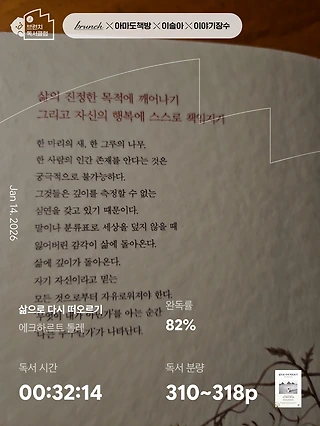 브런치
독서클럽
brunch × 아마도책방 × 이슬아 × 이야기장수
삶의 진정한 목적에 깨어나기
그리고 자신의 행복에 스스로 책임지기
한 마리의 새, 한 그루의 나무,
한 사람의 인간 존재를 안다는 것은
궁극적으로 불가능하다.
그것들은 깊이를 측정할 수 없는
심연을 갖고 있기 때문이다.
말이나 분류표로 세상을 덮지 않을 때
잃어버린 감각이 삶에 돌아온다.
삶에 깊이가 돌아온다.
자기 자신이라고 믿는
모든 것으로부터 자유로워져야 한다.
무엇이 '내가 아닌가'를 아는 순간
나는 누구인가'가 나타난다.
Jan 14, 2026
삶으로 다시 떠오르기
에크하르트 톨레
완독률
82%
독서 시간
00:32:14
독서 분량
310~318p